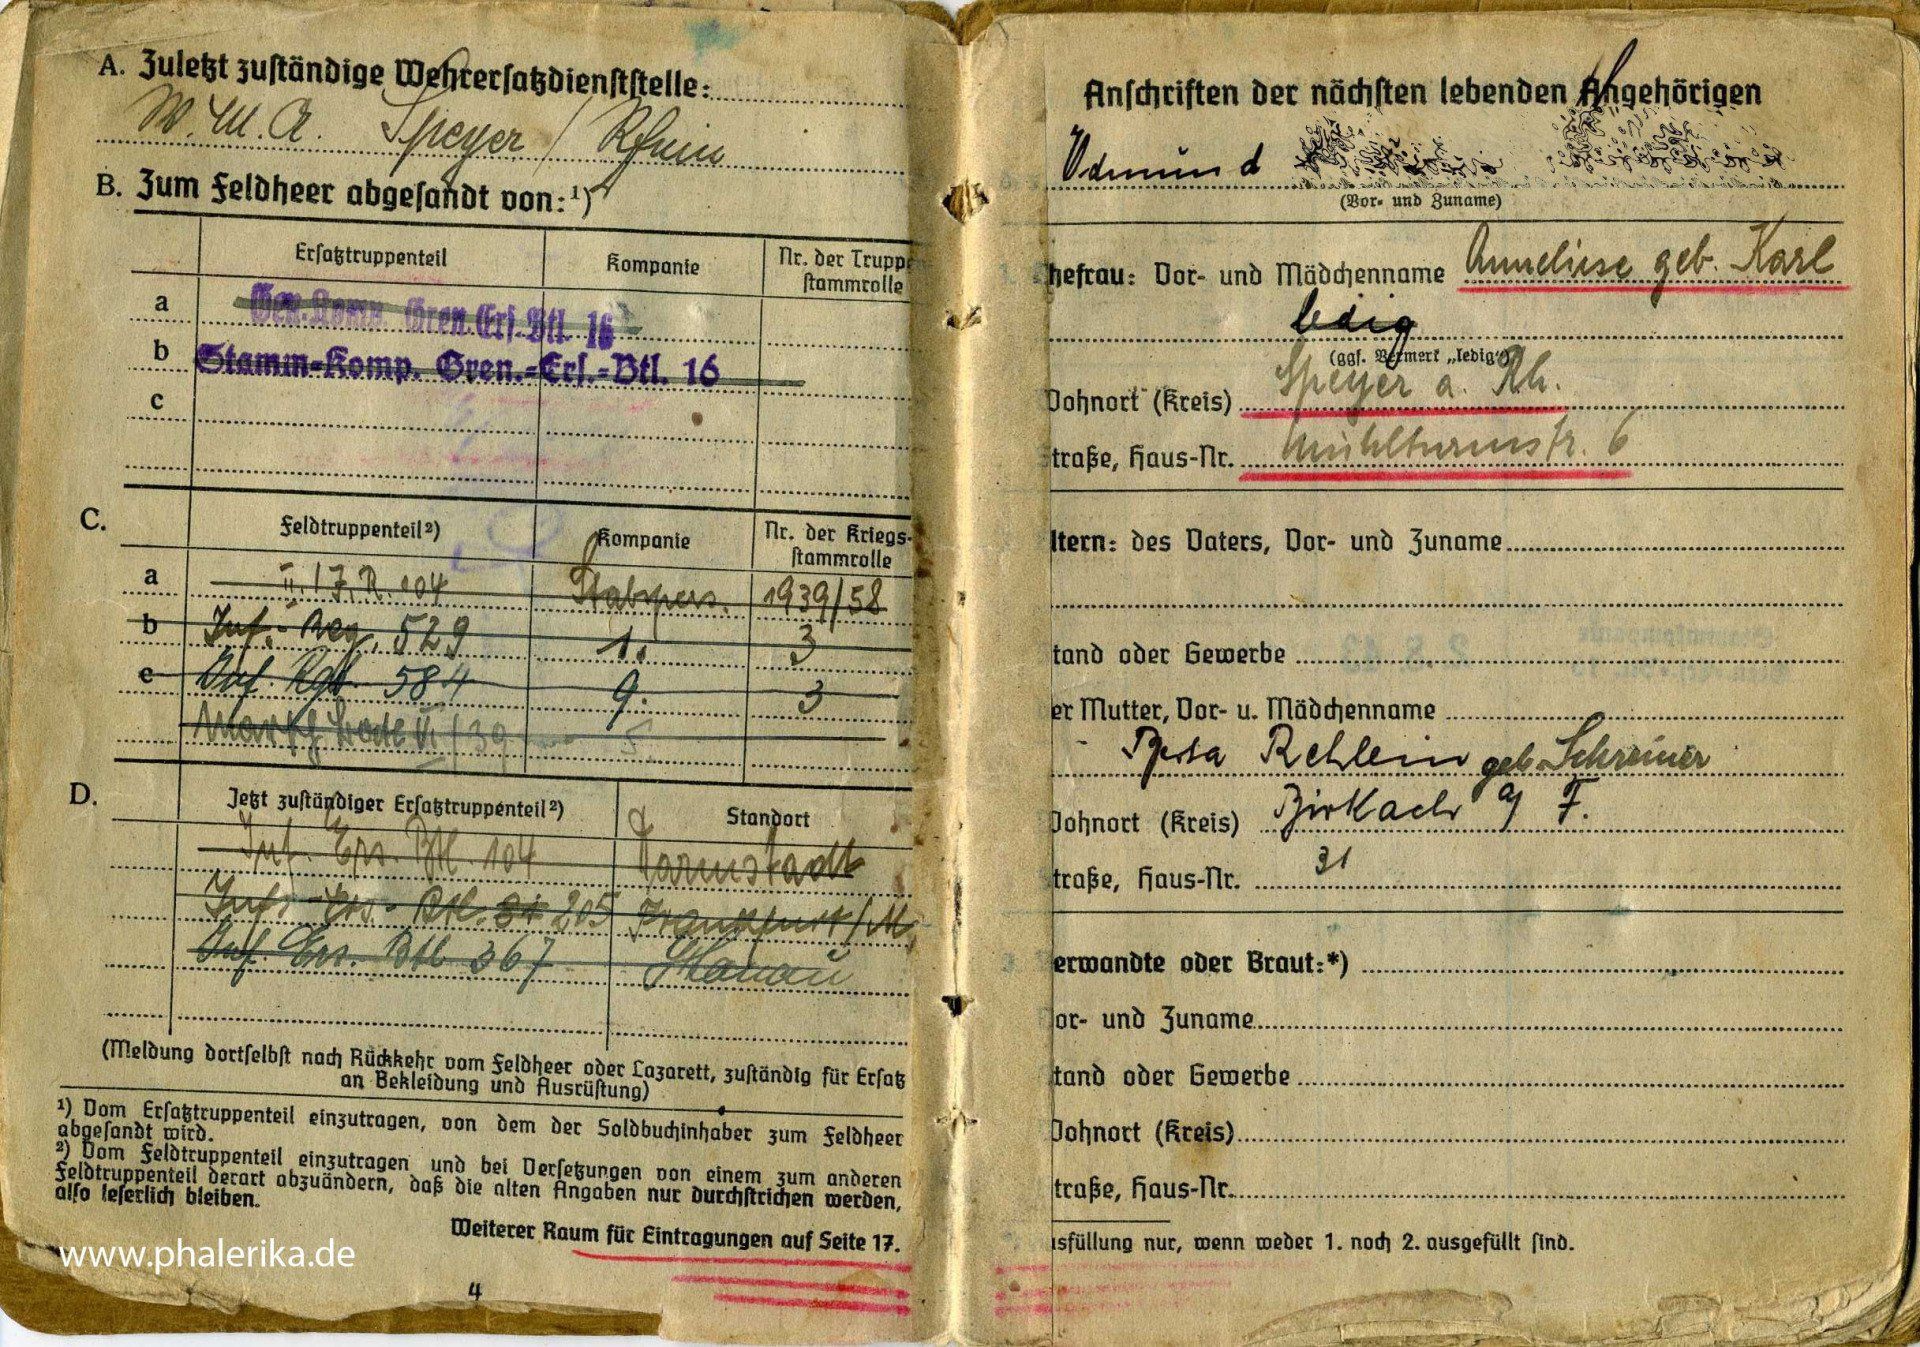 A. Zuletzt zuständige Wehrersatzdienststelle:
W. M. A. Speyer / Rhein
B. Zum Feldheer abgesandt von:¹)
Ersatztruppenteil Kompanie Nr. der Truppen-
stammrolle
a Gen. Komp. Gren. Ers. Btl. 16
b Stamm-Komp. Gren.-Ers.-Btl. 16
c
C. Feldtruppenteil²) Kompanie Nr. der Kriegs-
stammrolle
a II. / J. R. 104 Stabspers. 1939/58
b Inf.-Reg. 529 1. 3
c Inf. Rgt. 584 9. 3
/39 5.
D. Jetzt zuständiger Ersatztruppenteil²) Standort
Inf. Ers. Btl. 104 Darmstadt
Inf.-Ers.-Btl. 205 Frankfurt/M.
Inf. Ers. Btl 367 Hanau
(Meldung dortselbst nach Rückkehr vom Feldheer oder Lazarett, zuständig für Ersatz
an Bekleidung und Ausrüstung)
¹) Vom Ersatztruppenteil einzutragen, von dem der Soldbuchinhaber zum Feldheer
abgesandt wird.
²) Vom Feldtruppenteil einzutragen und bei Versetzungen von einem zum anderen
Feldtruppenteil derart abzuändern, daß die alten Angaben nur durchstrichen werden,
also leserlich bleiben.
Weiterer Raum für Eintragungen auf Seite 17.
www.phalerika.de
4
Anschriften der nächsten lebenden Angehörigen
(Vor- und Zuname)
hefrau: Vor- und Mädchenname Anneliese geb. Karl
ledig
(ggf. Vermerk „ledig“)
Wohnort (Kreis) Speyer a. Rh.
traße, Haus-Nr. Mühlturmstr. 6
ltern: des Vaters, Vor- und Zuname
tand oder Gewerbe
er Mutter, Vor- u. Mädchenname
Rosa Rehlein geb. Schreiner
Wohnort (Kreis) Birkach a/ F.
traße, Haus-Nr. 31
erwandte oder Braut:*)
or- und Zuname
tand oder Gewerbe
Wohnort (Kreis)
traße, Haus-Nr.
usfüllung nur, wenn weder 1. noch 2. ausgefüllt sind.